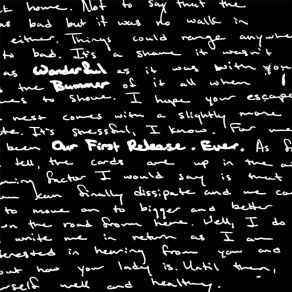 k home. Not to say that the
as bad but it was no walk in
either. Things could range anywhe
to bad. It's a shame it wasn't
as Wonderful as it was with you
the Bummer of it all when
mes to shove. I hope your escape
nest comes with a slightly more
te. It's stressful, I know. For me
been Our First Release. Ever. As f
tell, the cards are up in the ai
ing factor I would say is that
can finally dissipate and we ca
to move on to bigger and better
on the road from here. Well, I do
write me in return as I am
terested in hearing from you and
out how your lady is. Until then,
rself well and healthy.